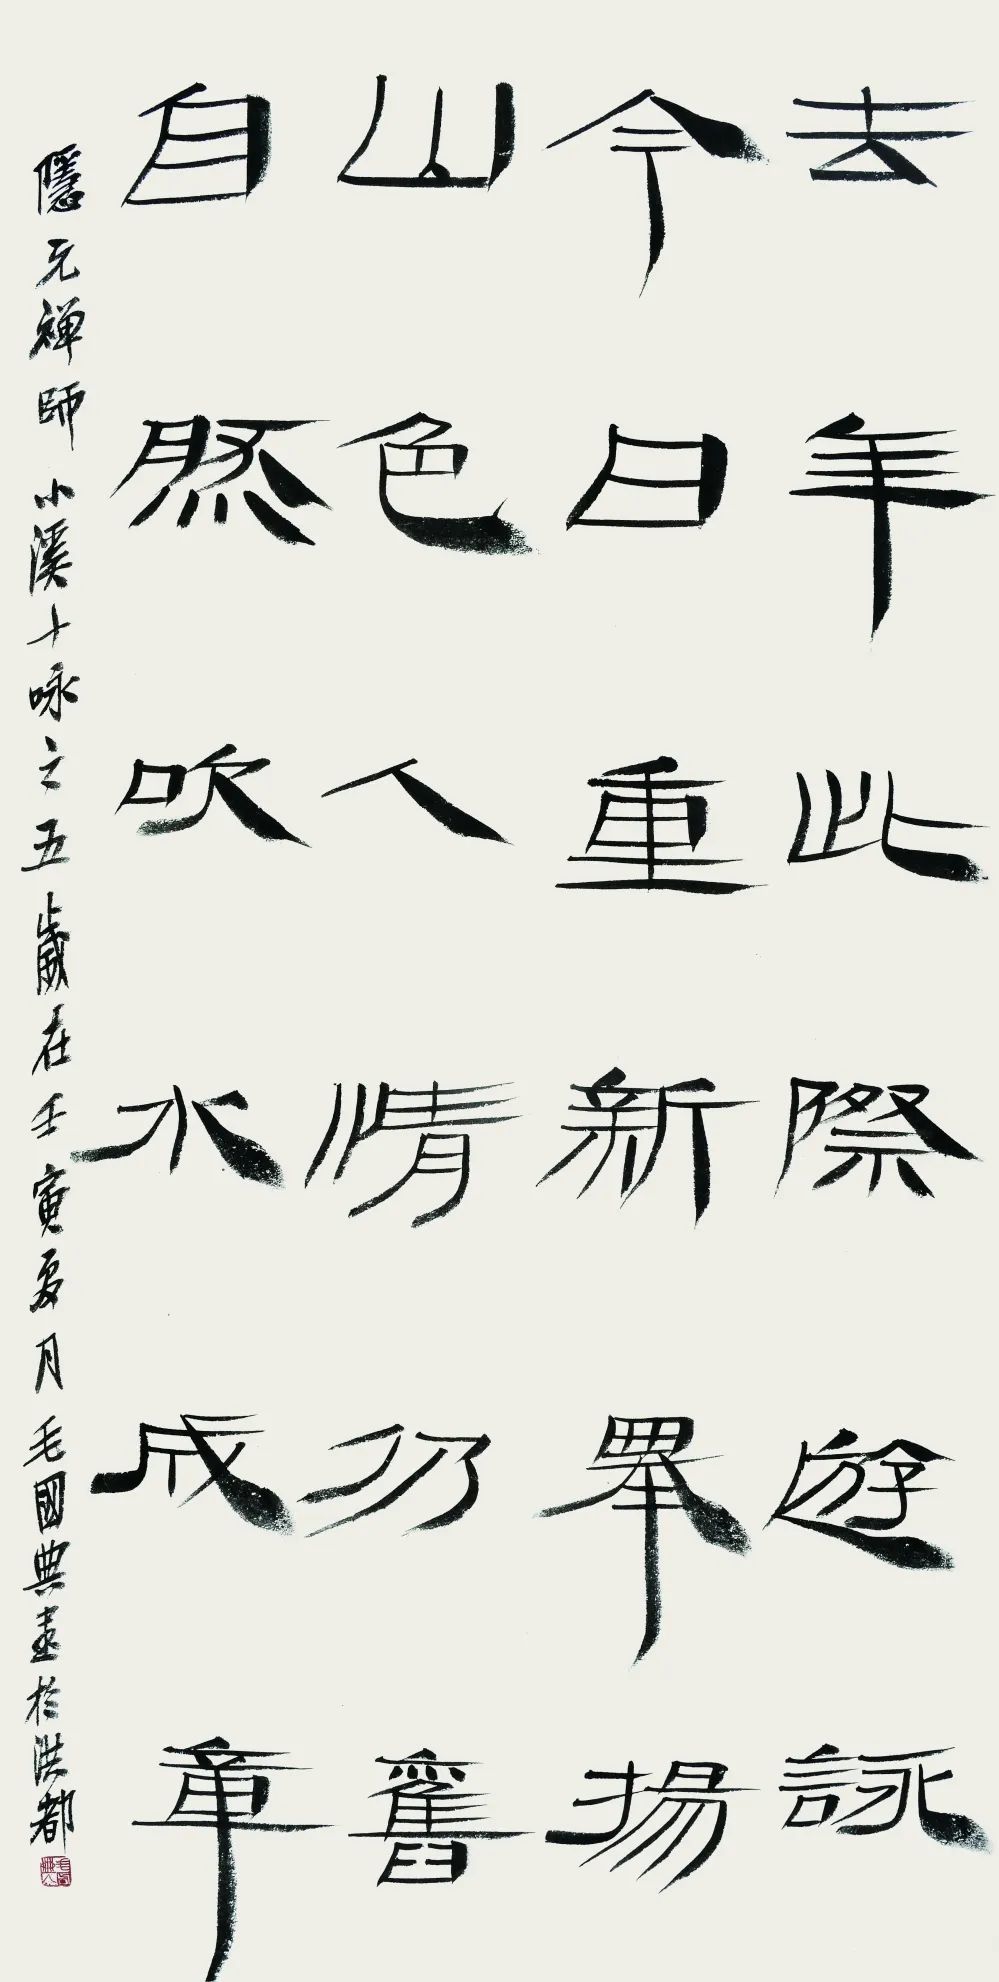 去年此際遊詠
今日重新舉揚
山色人情仍舊
自然吹水成章
隱元禅師小溪十咏之五歲在壬寅夏月毛國典書於洪都